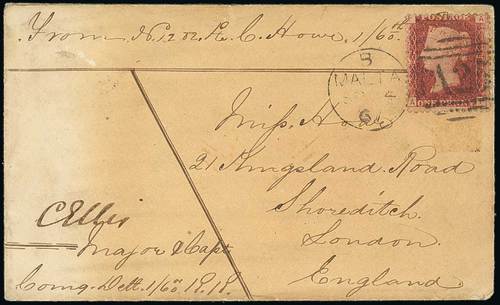 From No 1202 H. C. Howe 1/60th
POSTAGE
ONE PENNY
B
MALTA
Miss Howe
21 Kingsland Road
Shoreditch.
London.
England
CEllis
Major & Capt
Comg. Dett. 1/60th R.R.